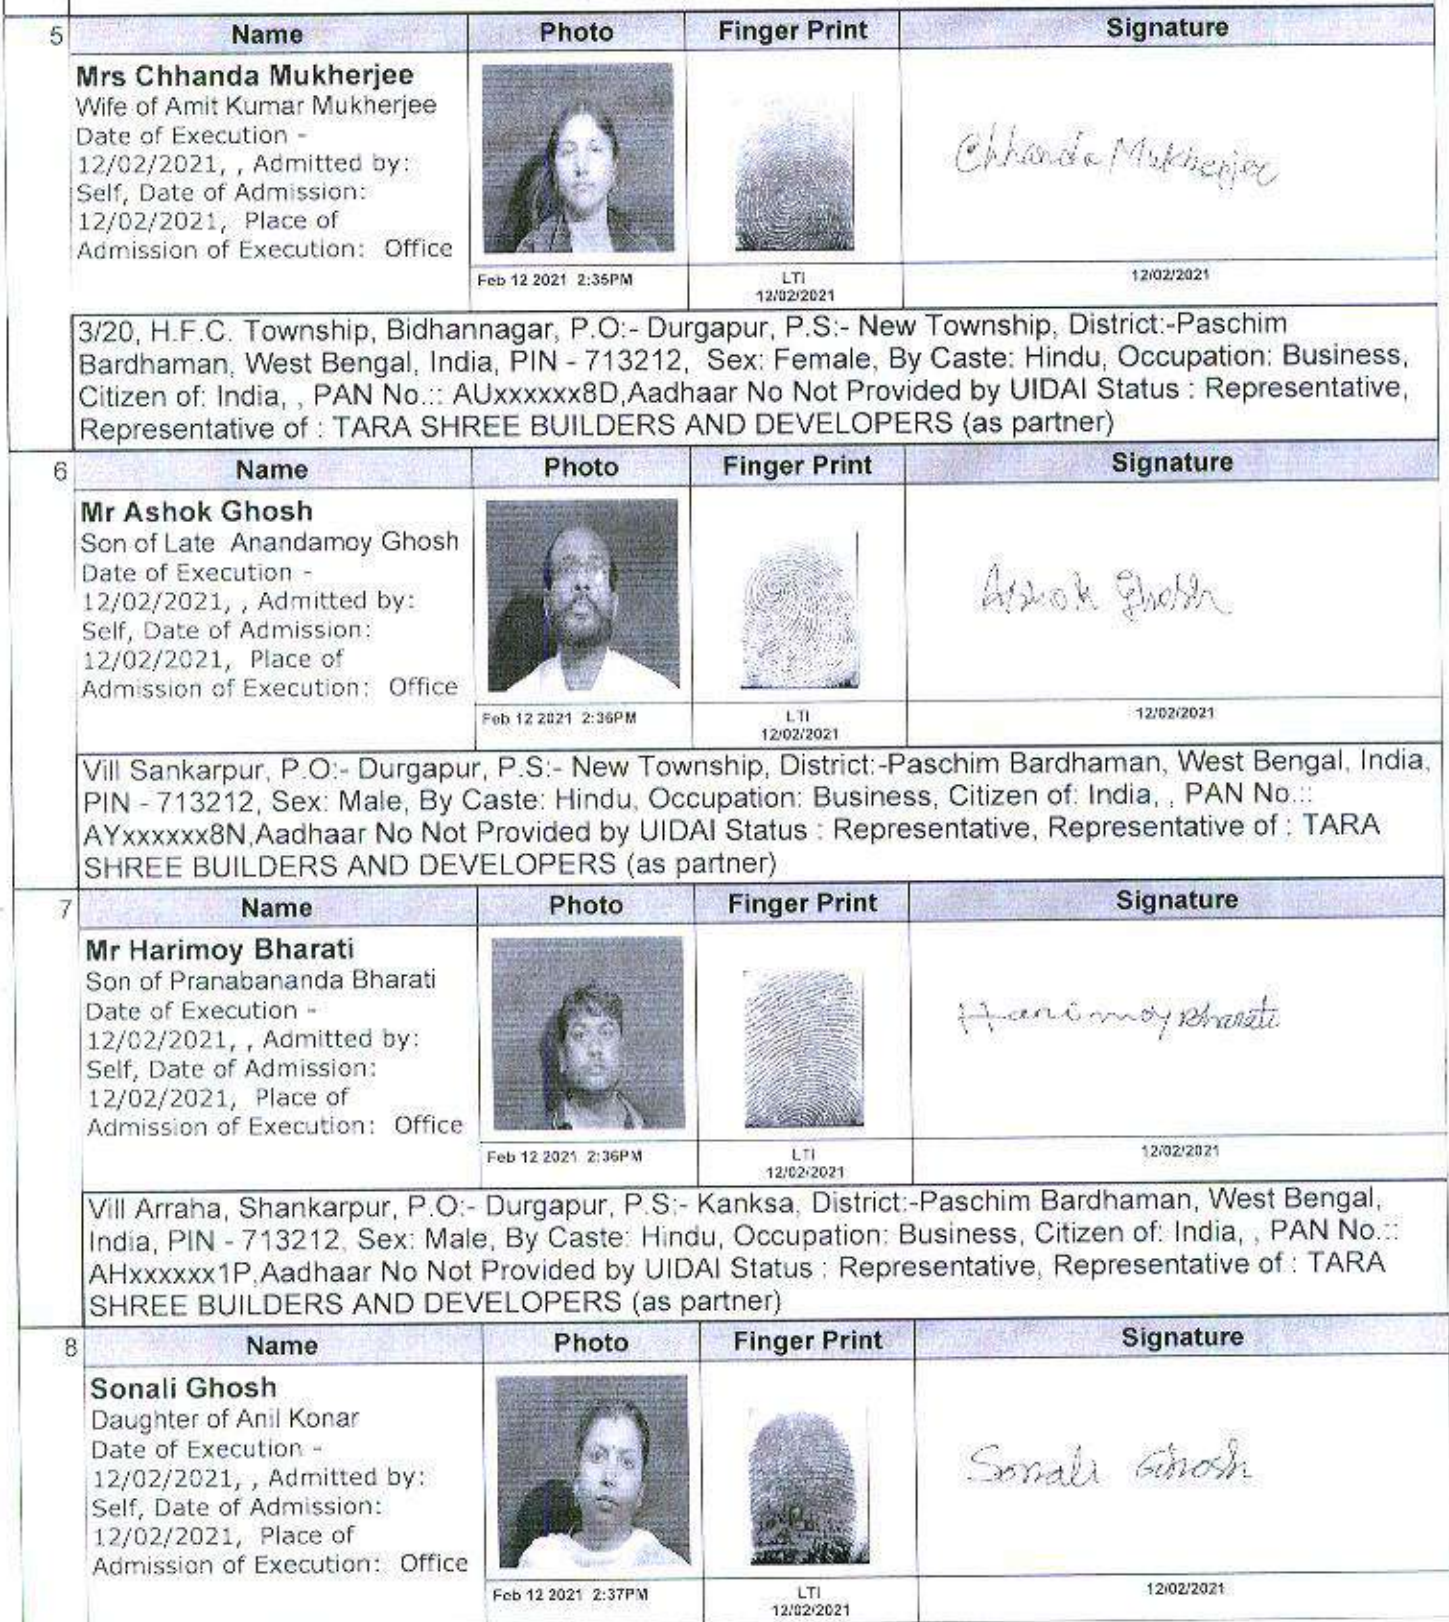 5 Name Photo Finger Print Signature
Mrs Chhanda Mukherjee
Wife of Amit Kumar Mukherjee
Date of Execution -
12/02/2021, , Admitted by:
Self, Date of Admission:
12/02/2021, Place of
Admission of Execution: Office
Chhanda Mukherjee
Feb 12 2021 2:35PM LTI 12/02/2021
12/02/2021
3/20, H.F.C. Township, Bidhannagar, P.O:- Durgapur, P.S:- New Township, District:-Paschim
Bardhaman, West Bengal, India, PIN - 713212, Sex: Female, By Caste: Hindu, Occupation: Business,
Citizen of: India, , PAN No.:: AUxxxxxx8D,Aadhaar No Not Provided by UIDAI Status : Representative,
Representative of : TARA SHREE BUILDERS AND DEVELOPERS (as partner)
6 Name Photo Finger Print Signature
Mr Ashok Ghosh
Son of Late Anandamoy Ghosh
Date of Execution -
12/02/2021, , Admitted by:
Self, Date of Admission:
12/02/2021, Place of
Admission of Execution: Office
Ashok Ghosh
Feb 12 2021 2:36PM LTI 12/02/2021
12/02/2021
Vill Sankarpur, P.O:- Durgapur, P.S:- New Township, District:-Paschim Bardhaman, West Bengal, India,
PIN - 713212, Sex: Male, By Caste: Hindu, Occupation: Business, Citizen of: India, , PAN No.::
AYxxxxxx8N,Aadhaar No Not Provided by UIDAI Status : Representative, Representative of : TARA
SHREE BUILDERS AND DEVELOPERS (as partner)
7 Name Photo Finger Print Signature
Mr Harimoy Bharati
Son of Pranabananda Bharati
Date of Execution -
12/02/2021, , Admitted by:
Self, Date of Admission:
12/02/2021, Place of
Admission of Execution: Office
Harimoy Bharati
Feb 12 2021 2:36PM LTI 12/02/2021
12/02/2021
Vill Arraha, Shankarpur, P.O:- Durgapur, P.S:- Kanksa, District:-Paschim Bardhaman, West Bengal,
India, PIN - 713212, Sex: Male, By Caste: Hindu, Occupation: Business, Citizen of: India, , PAN No.::
AHxxxxxx1P,Aadhaar No Not Provided by UIDAI Status : Representative, Representative of : TARA
SHREE BUILDERS AND DEVELOPERS (as partner)
8 Name Photo Finger Print Signature
Sonali Ghosh
Daughter of Anil Konar
Date of Execution -
12/02/2021, , Admitted by:
Self, Date of Admission:
12/02/2021, Place of
Admission of Execution: Office
Sonali Ghosh
Feb 12 2021 2:37PM LTI 12/02/2021
12/02/2021